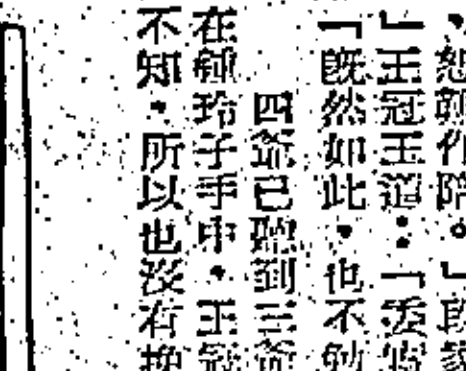 恕顏作陪。」段
」王冠玉道：「委
「既然如此，也不勉
四爺已聽到三爺
在玲子手中，王冠
不知，所以也沒有